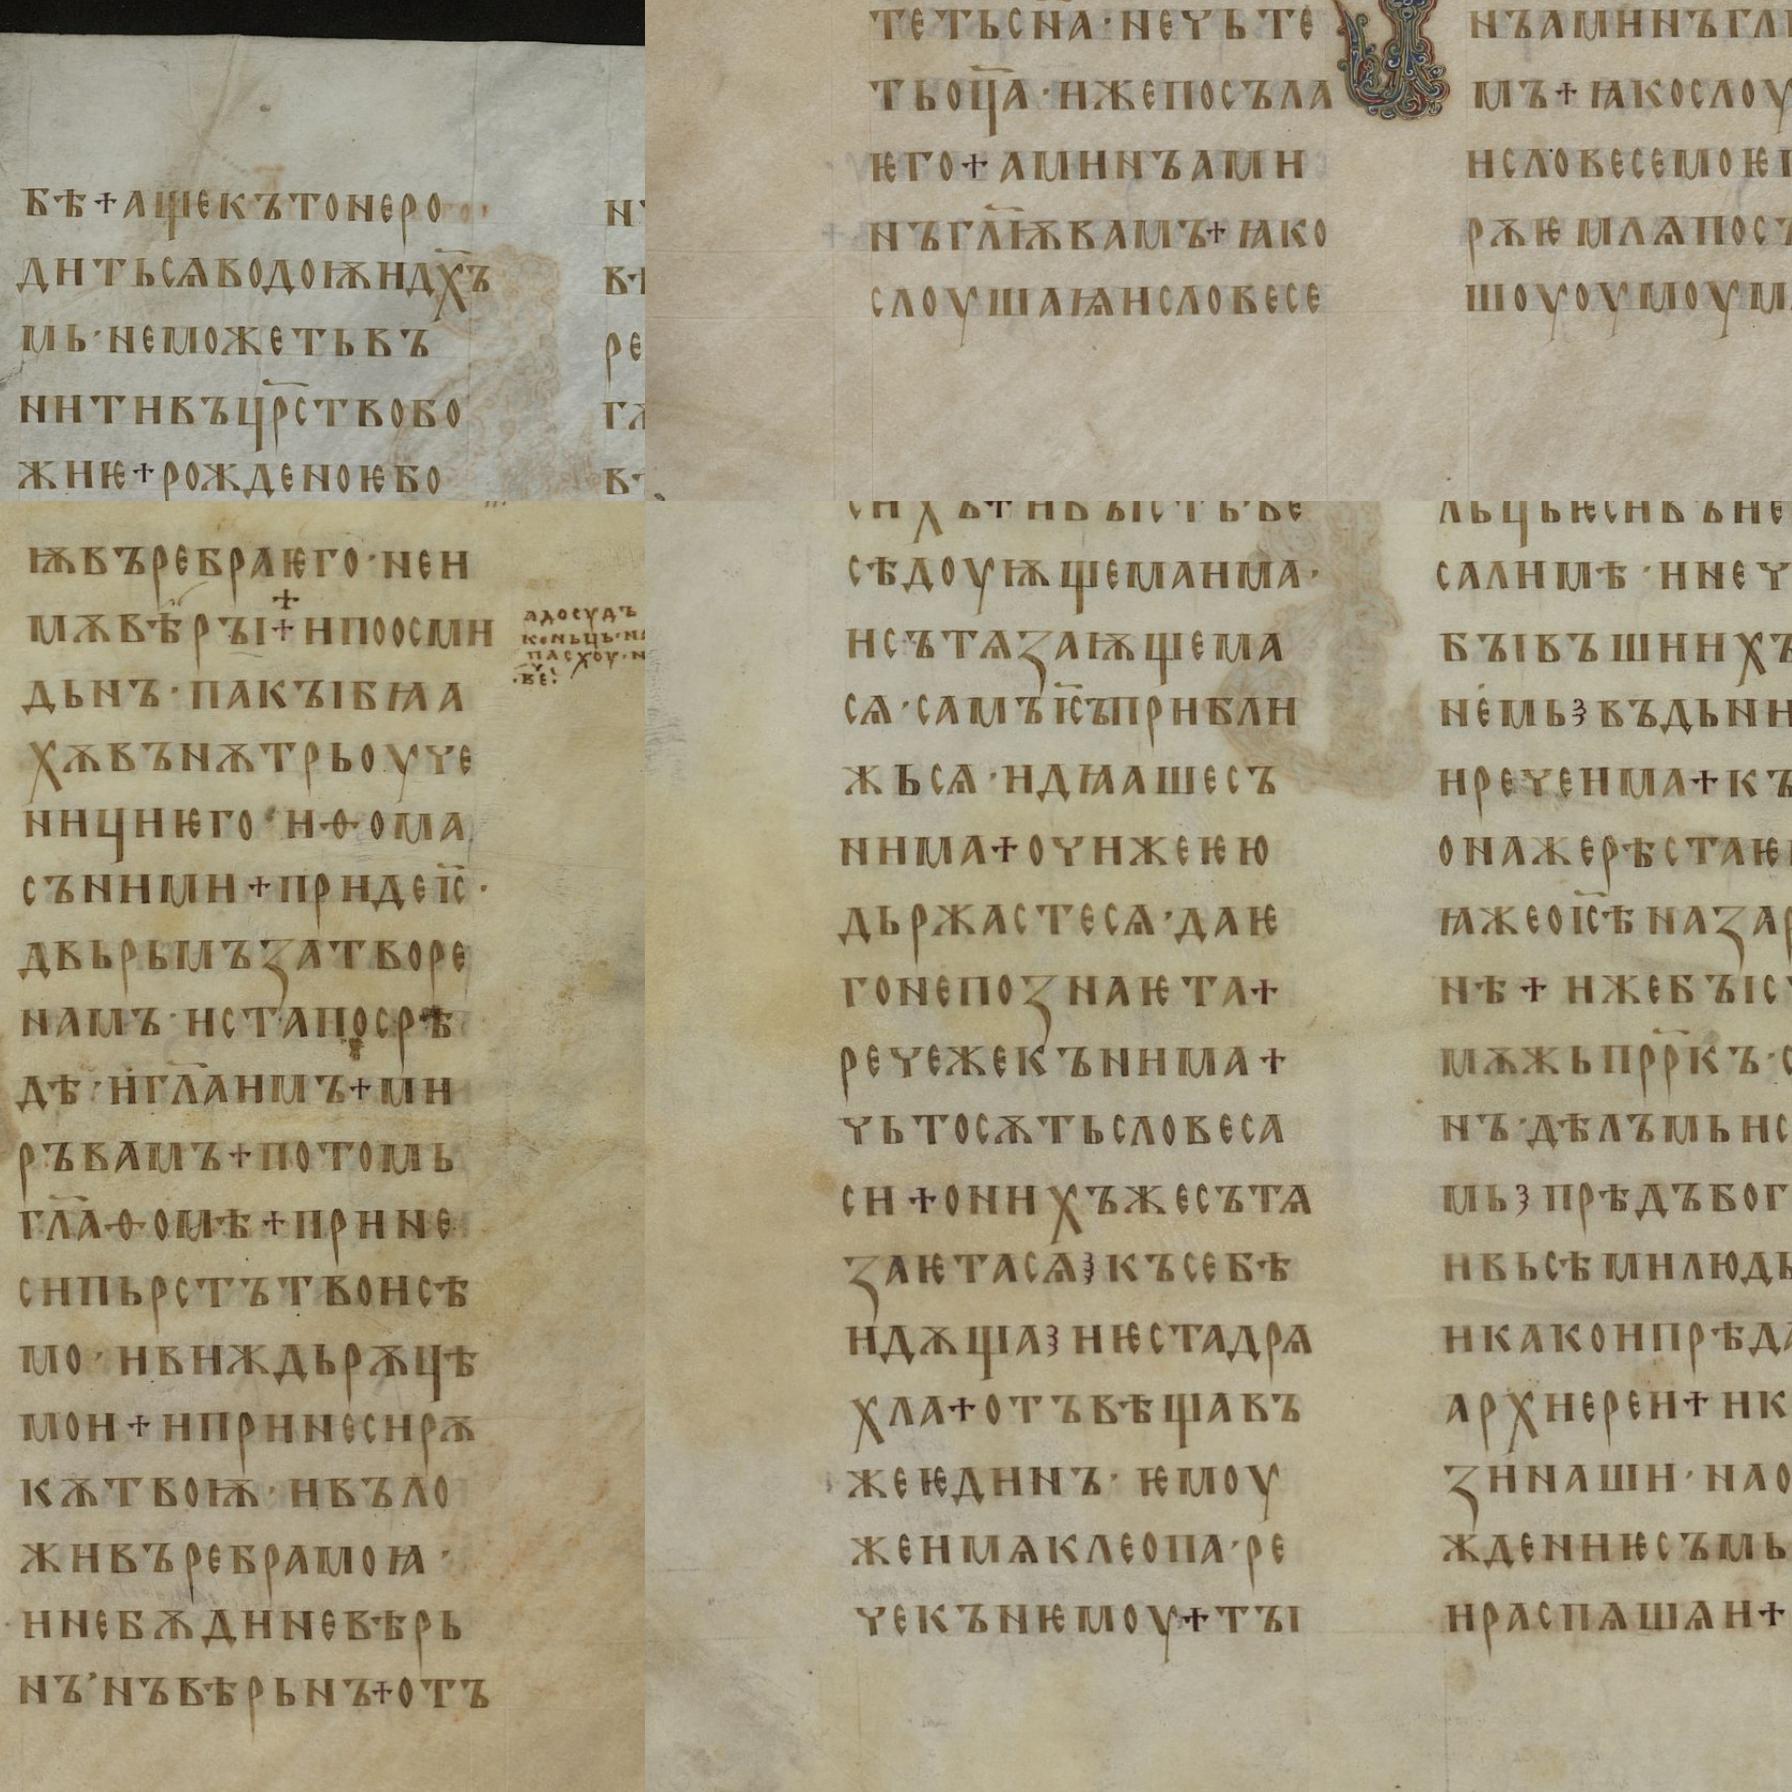 бѣ+ащекътонеро
дитьсѧводоѭидх҃ъ
мь·неможетьвъ
нитивъцр҃ствобо
жиѥ+рожденоѥбо
ре
гл
тетьсн҃а·нечьте
тьоц҃а·ижепосъла
ѥго+аминъами
нъгл҃ѭвамъ+ꙗко
слоушаꙗисловесе
нъаминъгл
мъ+ꙗкослоу
исловесемоѥг
рѫѥмлѧпосъ
шоуоумоум
ѭвъребраѥго·неи
мѫвѣрꙑ+ипоосми
дьнъ·пакꙑбꙗа
хѫвънѫтрьоуче
ницниѥго·иѳома
съними+придеіс҃·
двьрьмъзатворе
намъ·истапосрѣ
дѣ·игл҃анимъ+ми
ръвамъ+потомь
гл҃аѳомѣ+прине
сипьрстътвоисѣ
мо·ивиждьрѫцѣ
мои+ипринесирѫ
кѫтвоѭ·ивъло
живъребрамоꙗ·
инебѫдиневѣрь
нъ·нъвѣрьнъ+отъ
адосудъ
коньць·на
пасхоу·н
·ве҃·
сихъ+ибꙑсть·бе
сѣдоуѭщемаима·
исътѧзаѭщема
сѧ·самъіс҃ъприбли
жьсѧ·идꙗашесъ
нима+очижеѥю
дьржастесѧ·даѥ
гонепознаѥта+
речежекънима+
чьтосѫтьсловеса
си+онихъжесътѧ
заѥтасѧꙁкъсебѣ
идѫщаꙁиѥстадрѧ
хла+отъвѣщавъ
жеѥдинъ·ѥмоу
жеимѧклеопа·ре
чекънѥмоу+тꙑ
льцьѥсивъне
салимѣ·инеч
бꙑвъшиихъ
немьꙁвъдьни
иречеима+къ
онажерѣстаѥ
ꙗжеоіс҃ѣназар
нѣ+ижебꙑс
мѫжьпр҃ркъ·с
нъ·дѣлъмьис
мьꙁпрѣдъбог
ивьсѣмилюдь
икакоипрѣда
архиереи+ик
зинаши·нао
ждениѥсъмь
ираспѧшѧи+